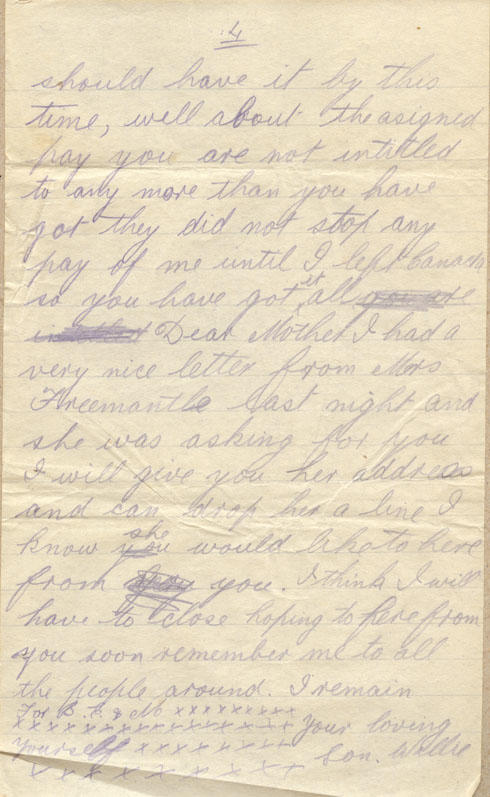 4
should have it by this
time, well about the asigned
pay you are not intitled
to any more than you have
got they did not stop any
pay of me until I left Canada
so you have got it all you are
Dear Mother I had a
very nice letter from Mrs
Freemantle last night and
she was asking for you
I will give you her address
and can drop her a line I
know you she would like to here
from you. I think I will
have to close hoping to here from
you soon remember me to all
the people around. I remain
For B. F. & M x x x x x x x x x
x x x x x x x x x x x x x x x x your loving
Yourself x x x x x x x x son. Willie
x x x x x x x x x x x x